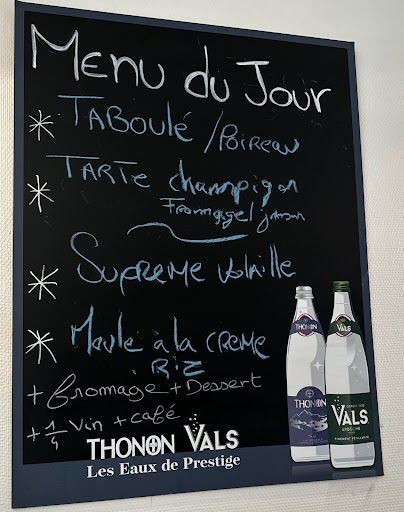 Menu du Jour
* Taboulé / Poireau
* Tarte champignon
Fromage / jambon
* Supreme volaille
* Moule a la creme
Riz
+ fromage + Dessert
+ 1/4 Vin + café
THONON VALS
Les Eaux de Prestige
THONON
THONON
VALS
VALS